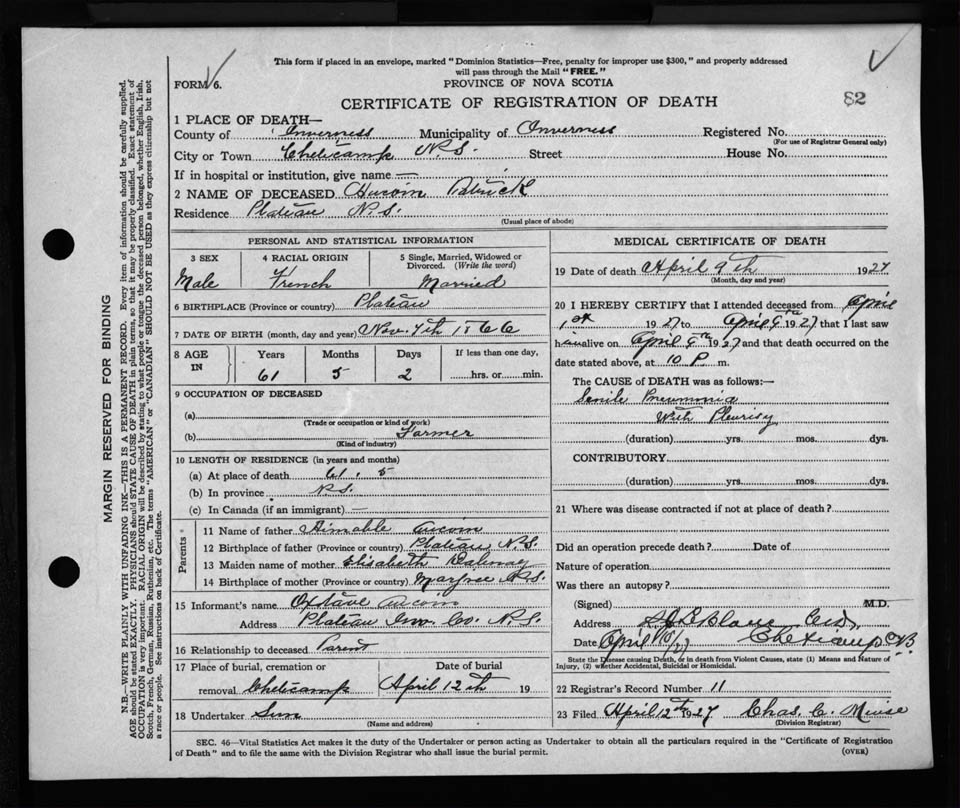 This form if placed in an envelope, marked "Dominion Statistics—Free, penalty for improper use $300," and properly addressed
will pass through the Mail "FREE."
FORM 6.
PROVINCE OF NOVA SCOTIA
CERTIFICATE OF REGISTRATION OF DEATH
82
1 PLACE OF DEATH—
County of Inverness Municipality of Inverness Registered No.
(For use of Registrar General only)
City or Town Cheticamp N.S. Street House No.
If in hospital or institution, give name —
2 NAME OF DECEASED Aucoin Patrick
Residence Plateau N.S.
(Usual place of abode)
PERSONAL AND STATISTICAL INFORMATION
3 SEX 4 RACIAL ORIGIN 5 Single, Married, Widowed or Divorced. (Write the word)
Male French Married
6 BIRTHPLACE (Province or country) Plateau
7 DATE OF BIRTH (month, day and year) Nov. 7th 1866
8 AGE IN Years Months Days If less than one day,
61 5 2 hrs. or min.
9 OCCUPATION OF DECEASED
(a)
(Trade or occupation or kind of work)
(b) Farmer
(Kind of industry)
10 LENGTH OF RESIDENCE (in years and months)
(a) At place of death 61. 5
(b) In province N.S.
(c) In Canada (if an immigrant) —
Parents
11 Name of father Aimable Aucoin
12 Birthplace of father (Province or country) Plateau N.S.
13 Maiden name of mother Elisabeth
14 Birthplace of mother (Province or country) Margree N.S.
15 Informant's name Octave Aucoin
Address Plateau Inv. Co. N.S.
16 Relationship to deceased Parent
17 Place of burial, cremation or removal Cheticamp Date of burial April 12th 19
18 Undertaker
(Name and address)
MEDICAL CERTIFICATE OF DEATH
19 Date of death April 9th 1927
(Month, day and year)
20 I HEREBY CERTIFY that I attended deceased from April
1st 1927 to April 9th 1927 that I last saw
him alive on April 9th 1927 and that death occurred on the
date stated above, at 10 P. m.
The CAUSE of DEATH was as follows:—
Senile Pneumonia
With Pleurisy
(duration) yrs. mos. dys.
CONTRIBUTORY
(duration) yrs. mos. dys.
21 Where was disease contracted if not at place of death?
Did an operation precede death? Date of
Nature of operation
Was there an autopsy?
(Signed) M.D.
Address LeBlanc
Date April 10/27 Cheticamp CB
State the Disease causing Death, or in death from Violent Causes, state (1) Means and Nature of
Injury, (2) whether Accidental, Suicidal or Homicidal.
22 Registrar's Record Number 11
23 Filed April 12th 1927 Chas. C. Muise
(Division Registrar)
SEC. 46—Vital Statistics Act makes it the duty of the Undertaker or person acting as Undertaker to obtain all the particulars required in the "Certificate of Registration
of Death" and to file the same with the Division Registrar who shall issue the burial permit.
(OVER)
MARGIN RESERVED FOR BINDING
N.B.—WRITE PLAINLY WITH UNFADING INK—THIS IS A PERMANENT RECORD. Every item of information should be carefully supplied.
AGE should be stated EXACTLY. PHYSICIANS should STATE CAUSE OF DEATH in plain terms, so that it may be properly classified. Exact statement of
OCCUPATION is very important. RACIAL ORIGIN will be described by stating to what people or tongue the deceased person belonged, whether English, Irish,
Scotch, French, German, Russian, Ruthenian, etc. The terms "AMERICAN" or "CANADIAN" SHOULD NOT BE USED as they express citizenship but not
a race or people. See instructions on back of Certificate.